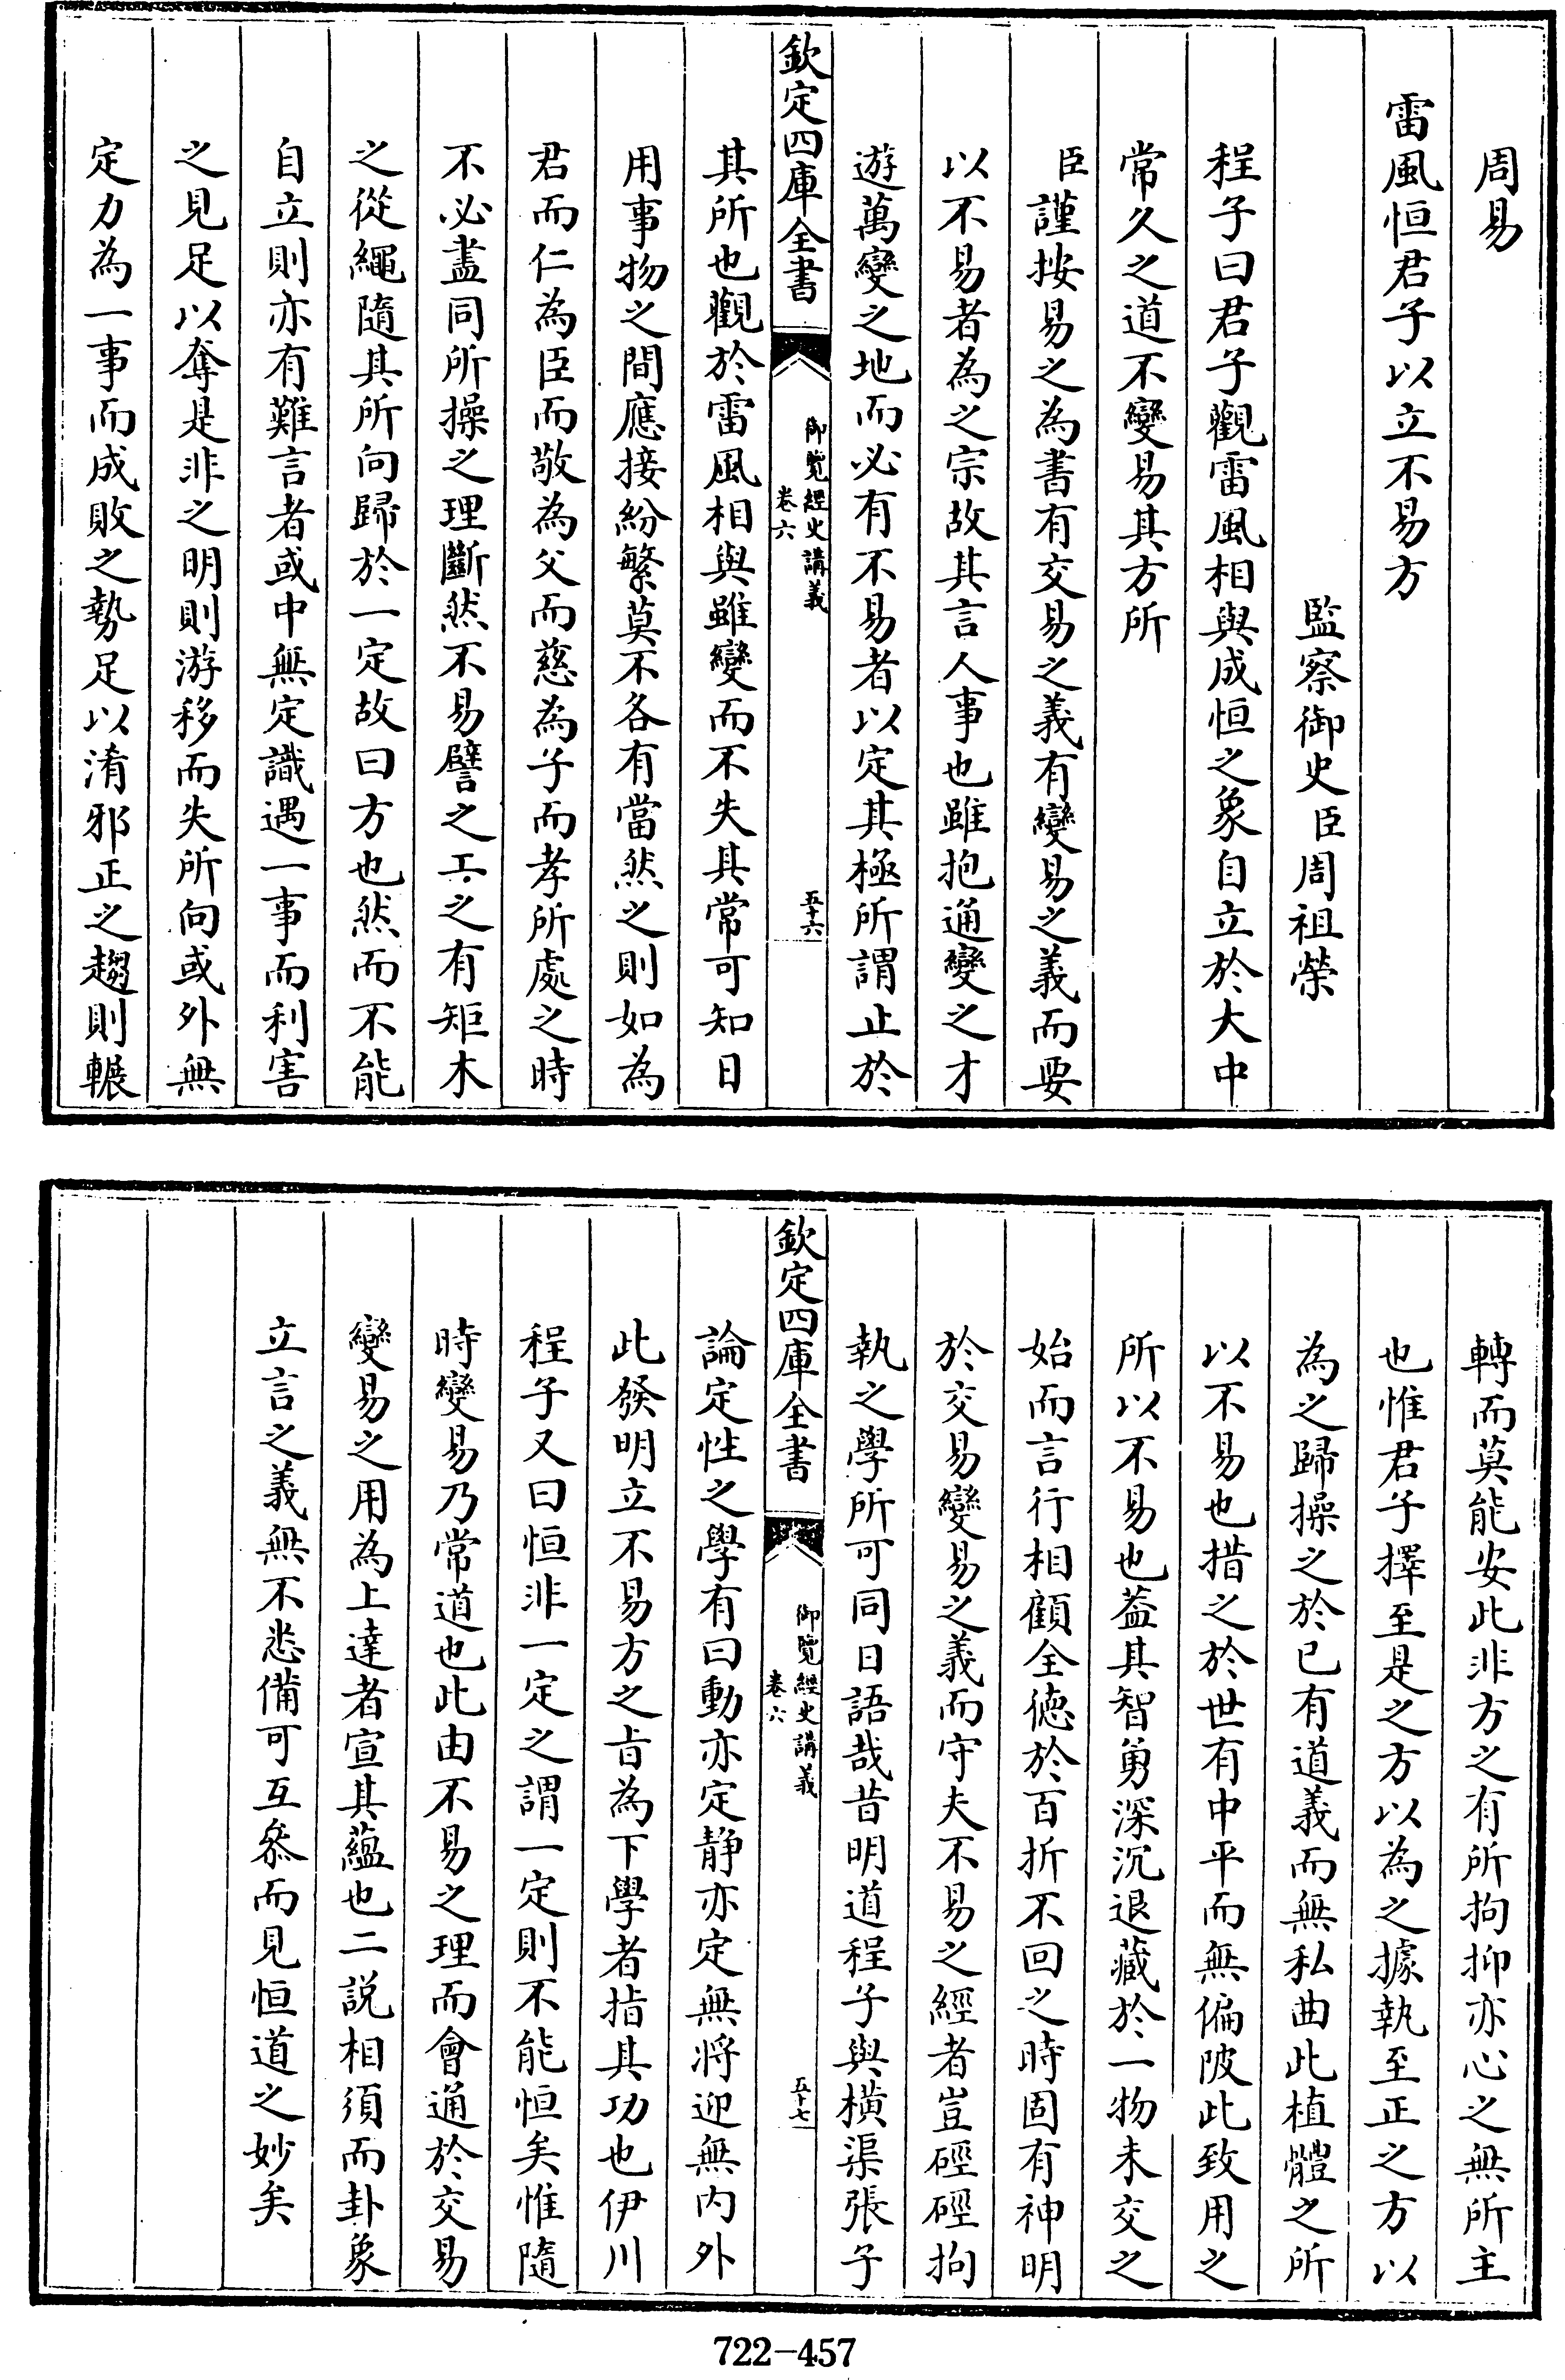 周易
雷風恒君子以立不易方
監察御史臣周祖榮
程子曰君子觀雷風相與成恒之象自立於大中
常久之道不變易其方所
臣謹按易之為書有交易之義有變易之義而要
以不易者為之宗故其言人事也雖抱通變之才
遊萬變之地而必有不易者以定其極所謂止於
欽定四庫全書
御覽經史講義
卷六
五十六
其所也觀於雷風相與雖變而不失其常可知日
用事物之間應接紛繁莫不各有當然之則如為
君而仁為臣而敬為父而慈為子而孝所處之時
不必盡同所操之理斷然不易譬之工之有矩木
之從繩隨其所向歸於一定故曰方也然而不能
自立則亦有難言者或中無定識遇一事而利害
之見足以奪是非之明則游移而失所向或外無
定力為一事而成敗之勢足以淆邪正之趨則輾
轉而莫能安此非方之有所拘抑亦心之無所主
也惟君子擇至是之方以為之據執至正之方以
為之歸操之於已有道義而無私曲此植體之所
以不易也措之於世有中平而無偏陂此致用之
所以不易也葢其智勇深沉退藏於一物未交之
始而言行相顧全德於百折不回之時固有神明
於交易變易之義而守夫不易之經者豈硜硜拘
執之學所可同日語哉昔明道程子與橫渠張子
欽定四庫全書
御覽經史講義
卷六
五十七
論定性之學有曰動亦定静亦定無將迎無内外
此發明立不易方之㫖為下學者指其功也伊川
程子又曰恒非一定之謂一定則不能恒矣惟隨
時變易乃常道也此由不易之理而會通於交易
變易之用為上達者宣其蘊也二説相須而卦象
立言之義無不悉備可互叅而見恒道之妙矣
722-457